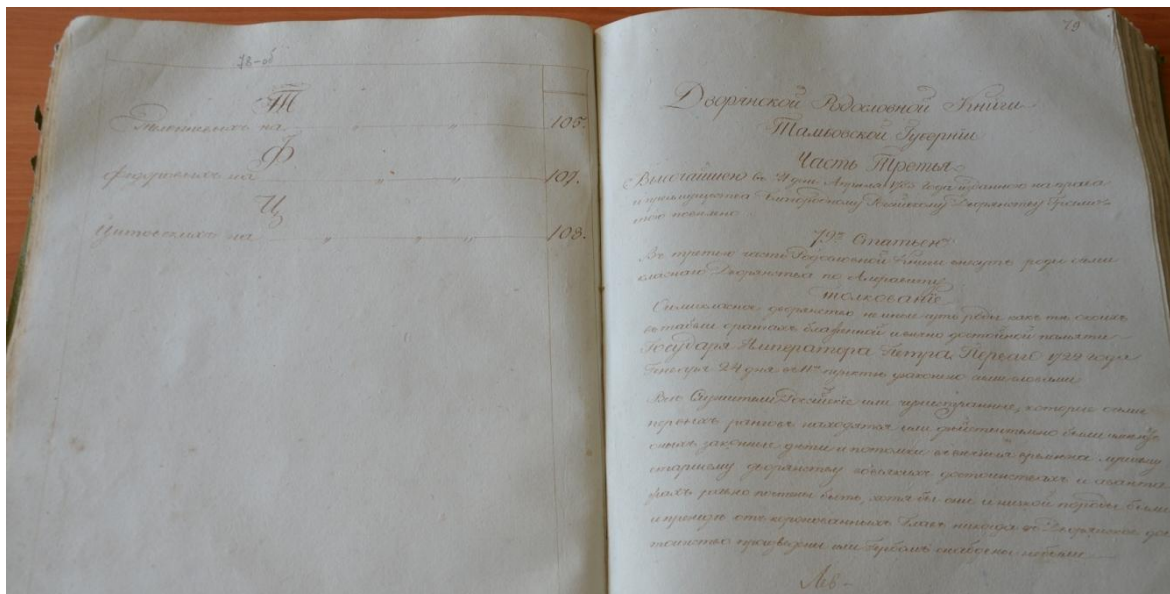 78-об
Т
на " " " 105.
Ф
на " " " 107.
Ц
на " " " 108.
79
Дворянской Родословной Книги
Тамбовской Губернїи
Часть Третья
Высочайшею въ 21 день Апреля 1785 года изданною на права
и преимущества Благородному Россїйскому Дворянству Грамо
тою повелено
79й Статьею
Въ третью часть Родословной Книги внесутъ роды осьми
класнаго Дворянства по Алфавиту
толкованїе
Осьмикласное дворянство не иное суть роды какъ те, коихъ
въ табели о рангахъ блаженной и вечно достойной памяти
Государя Императора Петра Перваго 1722 года
Генваря 24 дня въ 11м пункте узаконено сими словами
Все Служители Россїйскїе или чужестранные, которые осьми
первыхъ ранговъ находятся или действительно были имеютъ
оныхъ законные дети и потомки въ вечныя времена лучшему
старшему дворянству во всякихъ достоинствахъ и авантa
жахъ равно почтены быть, хотя бы они и низкой породы были
и прежде отъ коронованныхъ Главъ никогда въ Дворянское дос
тоинство произведены или Гербомъ снабдены небыли